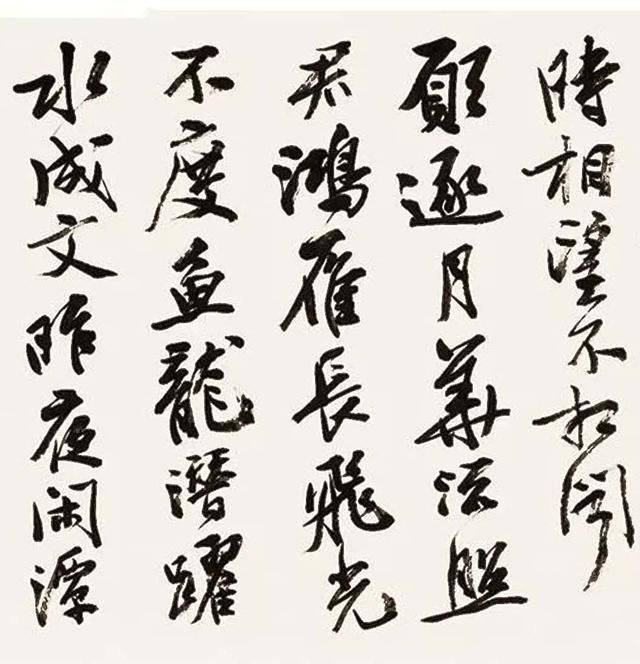 時相望不相聞
願逐月華流照
君鴻雁長飛光
不度魚龍潛躍
水成文昨夜闲潭